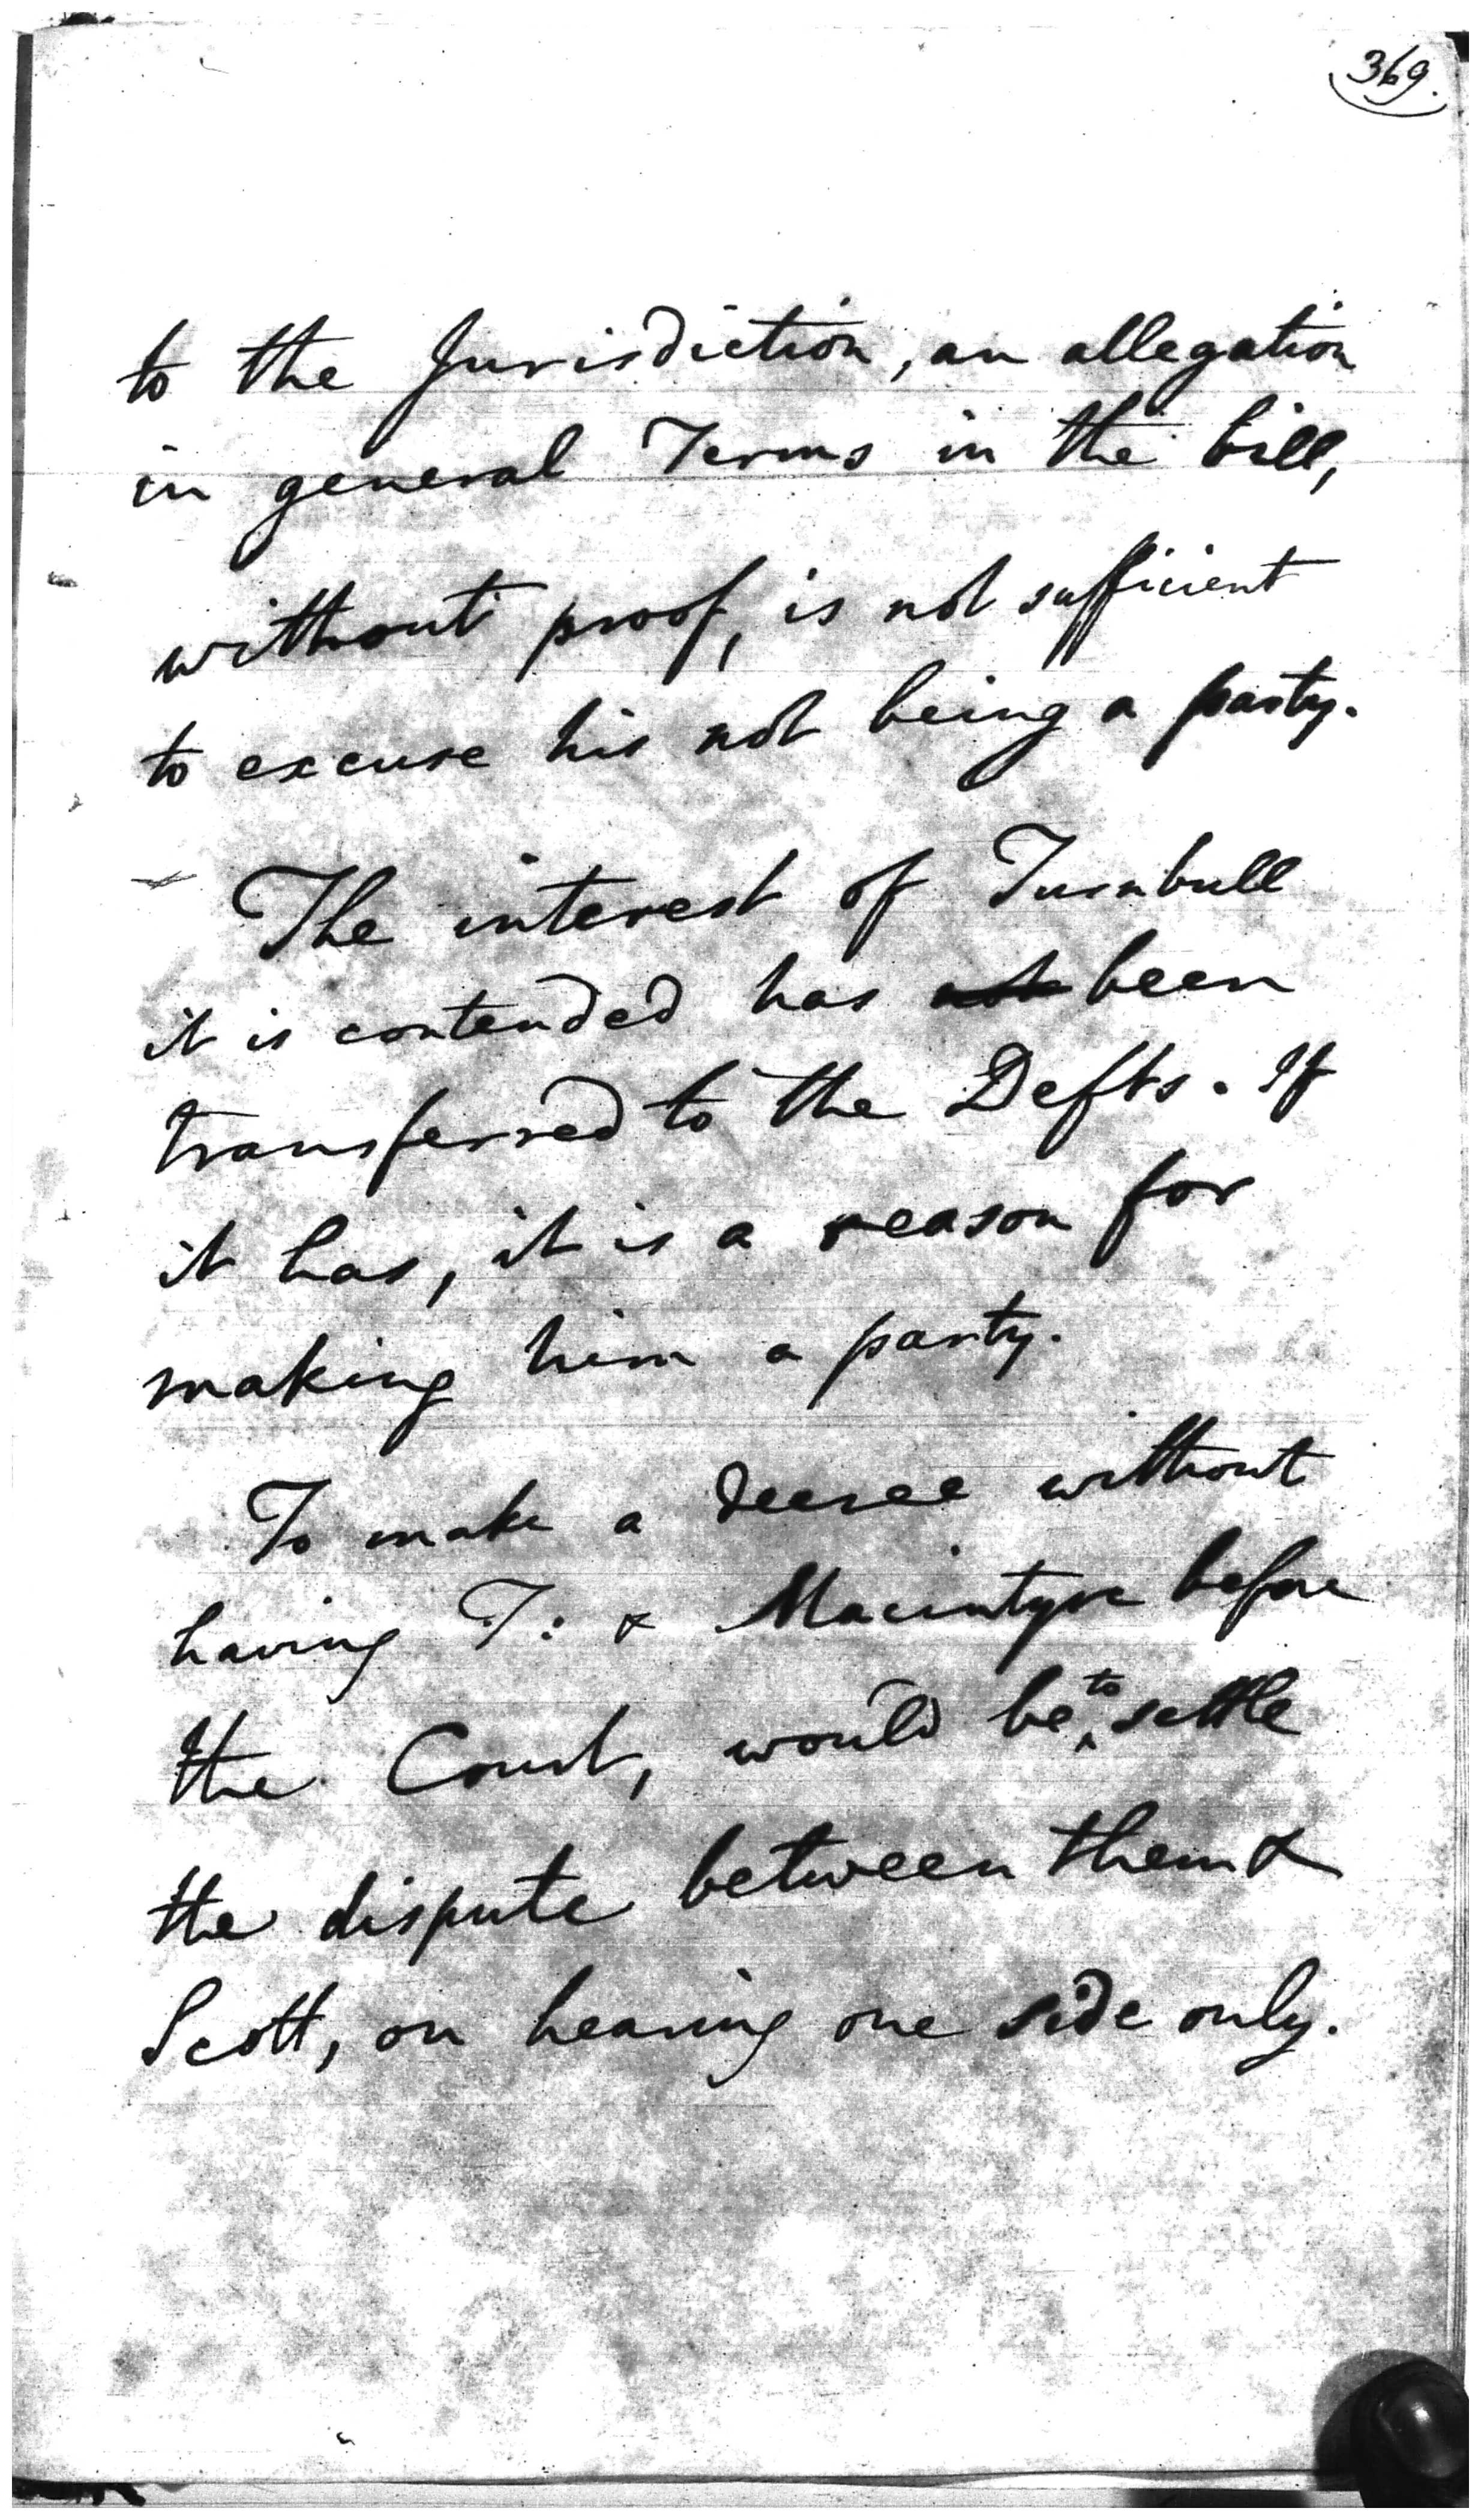 369.
to the Jurisdiction, an allegation
in general Terms in the bill,
without proof, is not sufficient
to excuse his not being a party.
The interest of Turnbull
it is contended has not been
transferred to the Defts. If
it has, it is a reason for
making him a party.
To make a decree without
having T: & Macintyre before
the Court, would be to settle
the dispute between them &
Scott, on hearing one side only.